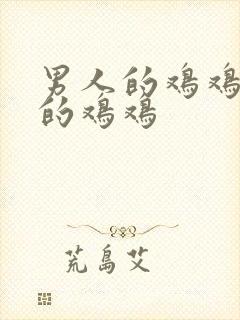 男人的鸡鸡
的鸡鸡
荒岛艾